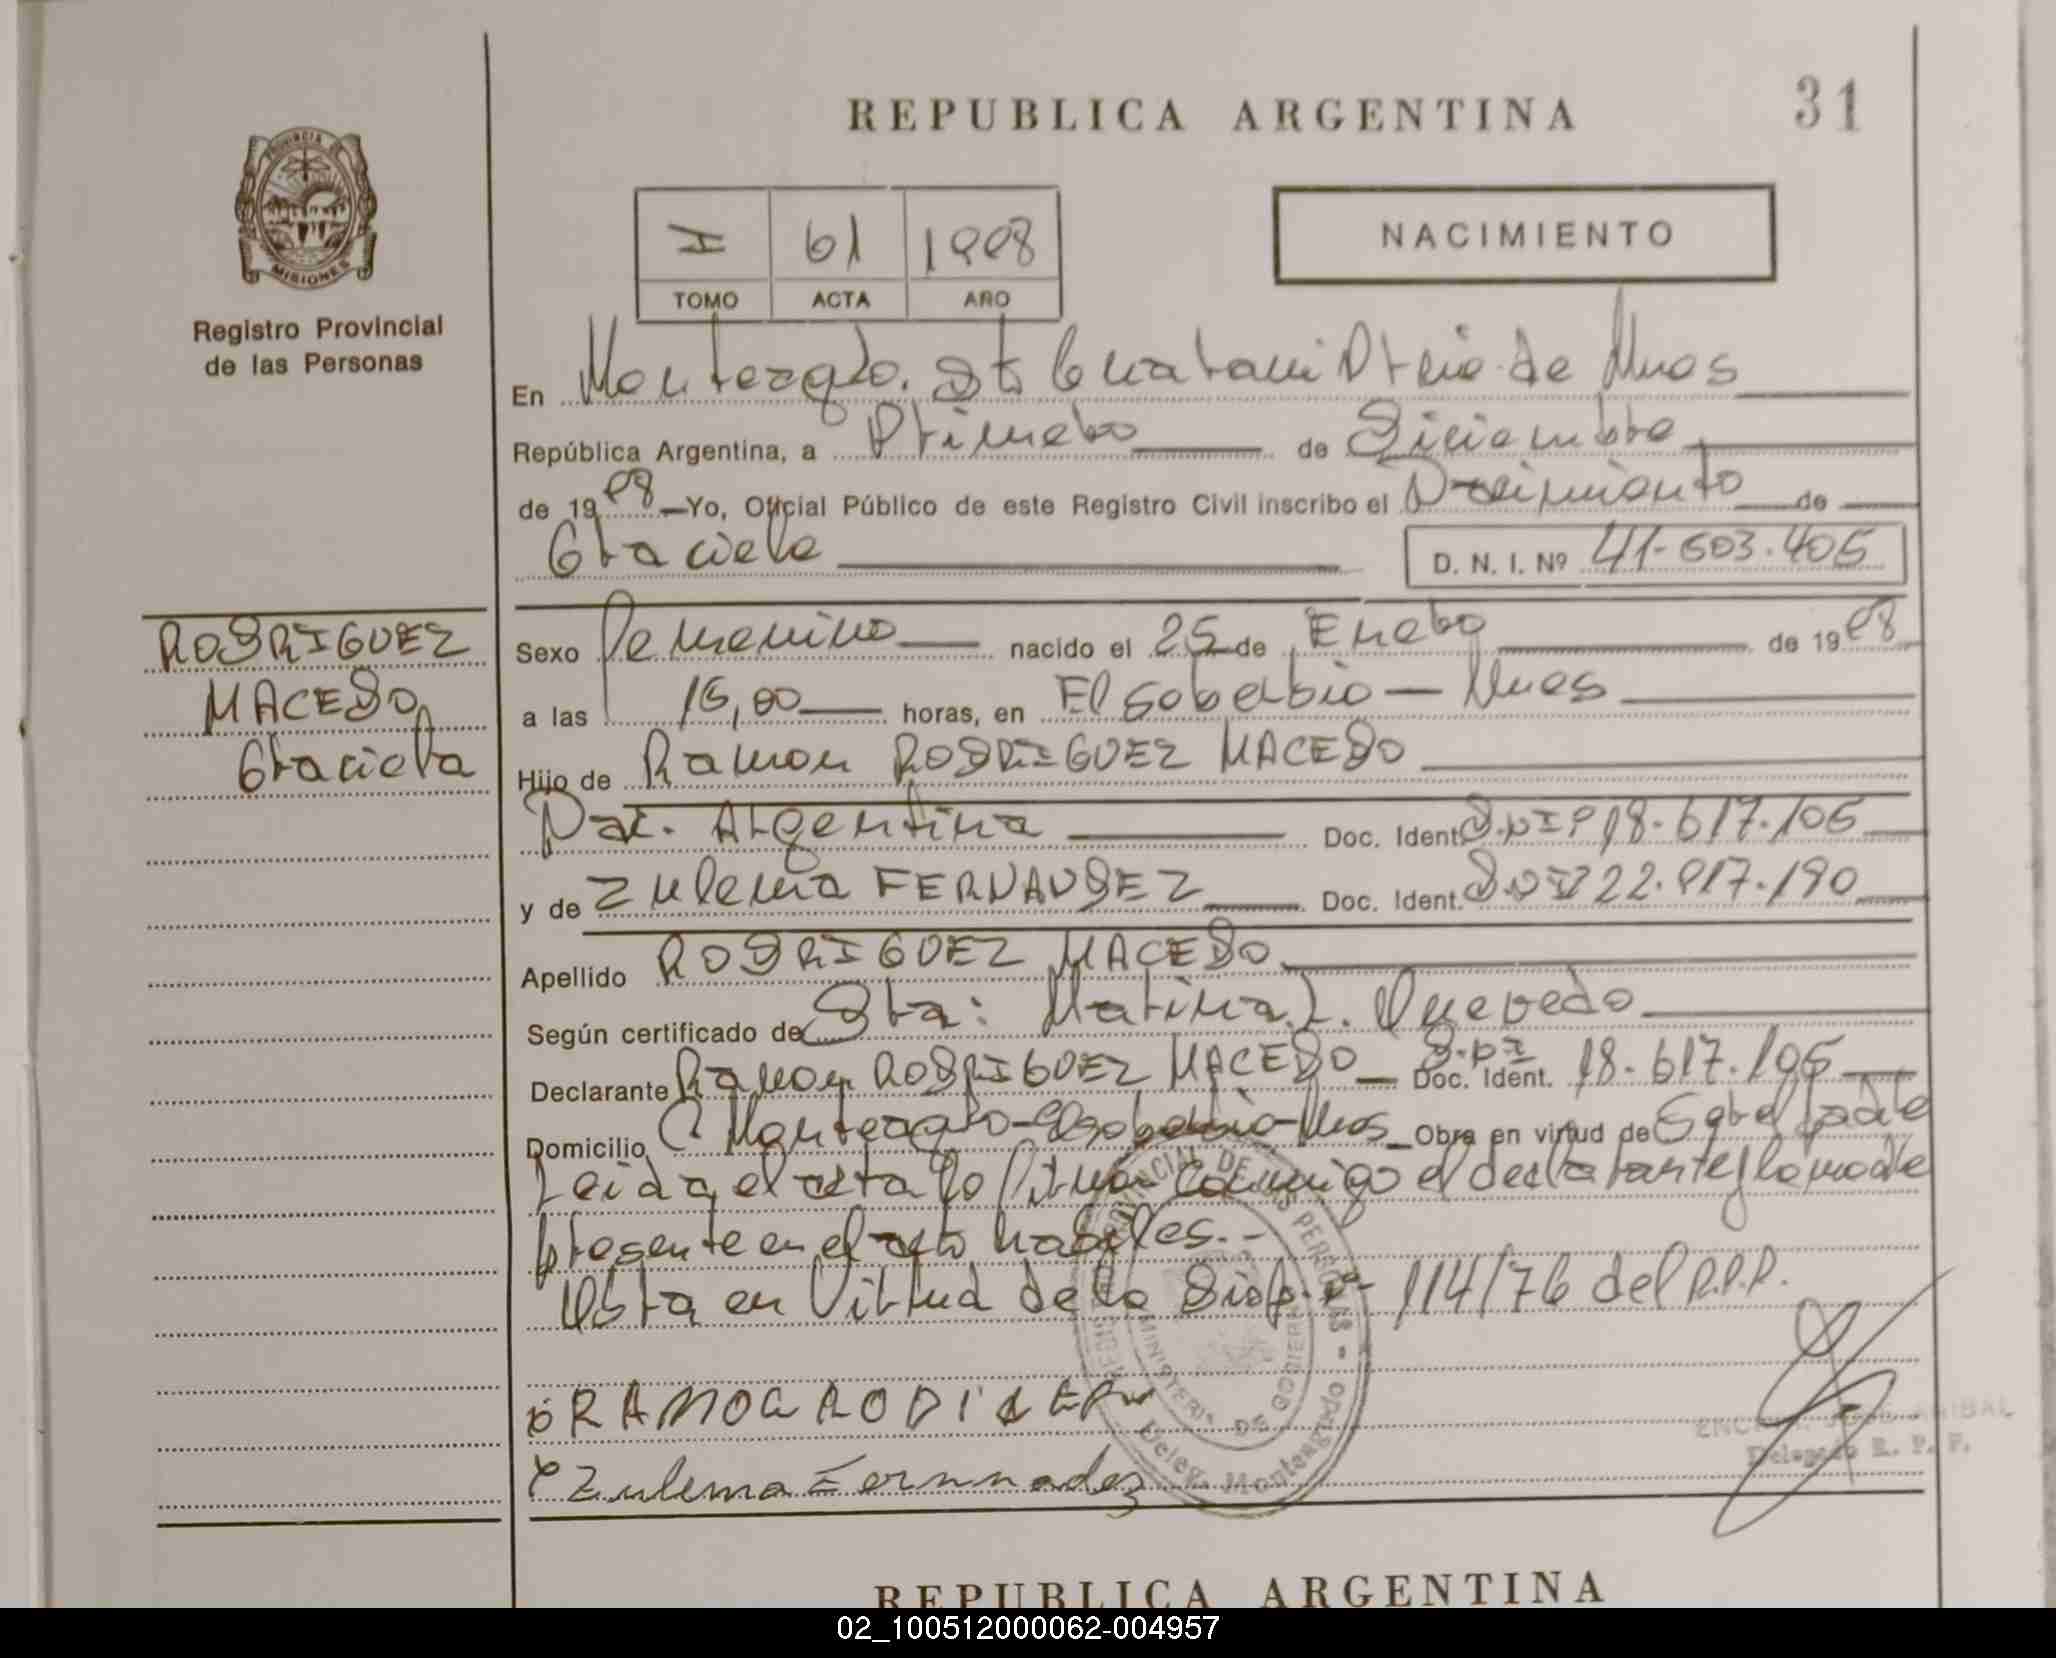 REPUBLICA ARGENTINA
31
PROVINCIA DE
MISIONES
Registro Provincial
de las Personas
I 61 1998
TOMO ACTA AÑO
NACIMIENTO
En Monteagdo. Dto Guarani Prcio de Mnes
República Argentina, a Primero de Diciembre
de 1998 Yo, Oficial Público de este Registro Civil inscribo el Nacimiento de
Graciela
D. N. I. Nº 41-603.405
RODRIGUEZ
MACEDO
Graciela
Sexo Femenino nacido el 25 de Enero de 1998
a las 15,00 horas, en El Soberbio - Mnes
Hijo de Ramon RODRIGUEZ MACEDO
Nac. Argentina Doc. Ident. D.N.I 18.617.105
y de Zulema FERNANDEZ Doc. Ident. D.N.I 22.917.190
Apellido RODRIGUEZ MACEDO
Según certificado de Dra: Marina. L. Quevedo
Declarante Ramon RODRIGUEZ MACEDO Doc. Ident. D.N.I 18.617.105
Domicilio Monteagdo - El Soberbio - Mnes Obra en virtud de Ser el padre
Leida el acta lo firman conmigo el declarante y la madre
presente en el acto habiles.-
Obra en Virtud de la Disp. 114/76 del R.P.P.
RAMOG RODIGER
Zulema Fernnadez
PROVINCIAL DE LAS PERSONAS
MINISTERIO DE GOBIERNO
Deleg. Monteagudo
JOSE ANIBAL
Delegado R. P. P.
REPUBLICA ARGENTINA
02_100512000062-004957